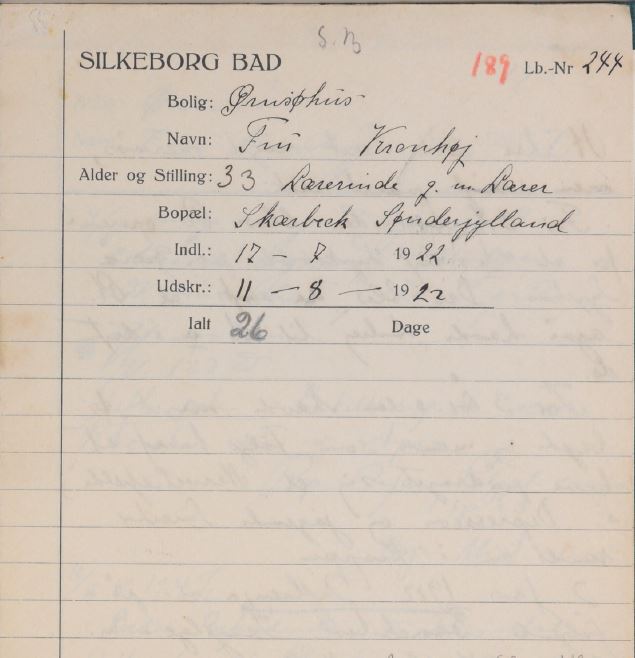 S. B
SILKEBORG BAD 189 Lb.-Nr 244
Bolig: Ørnsøhus
Navn: Fru Kronhøj
Alder og Stilling: 33 Lærerinde g. m. Lærer
Bopæl: Skærbeck Sønderjylland
Indl.: 17 - 7 1922
Udskr.: 11 - 8 - 1922
Ialt 26 Dage